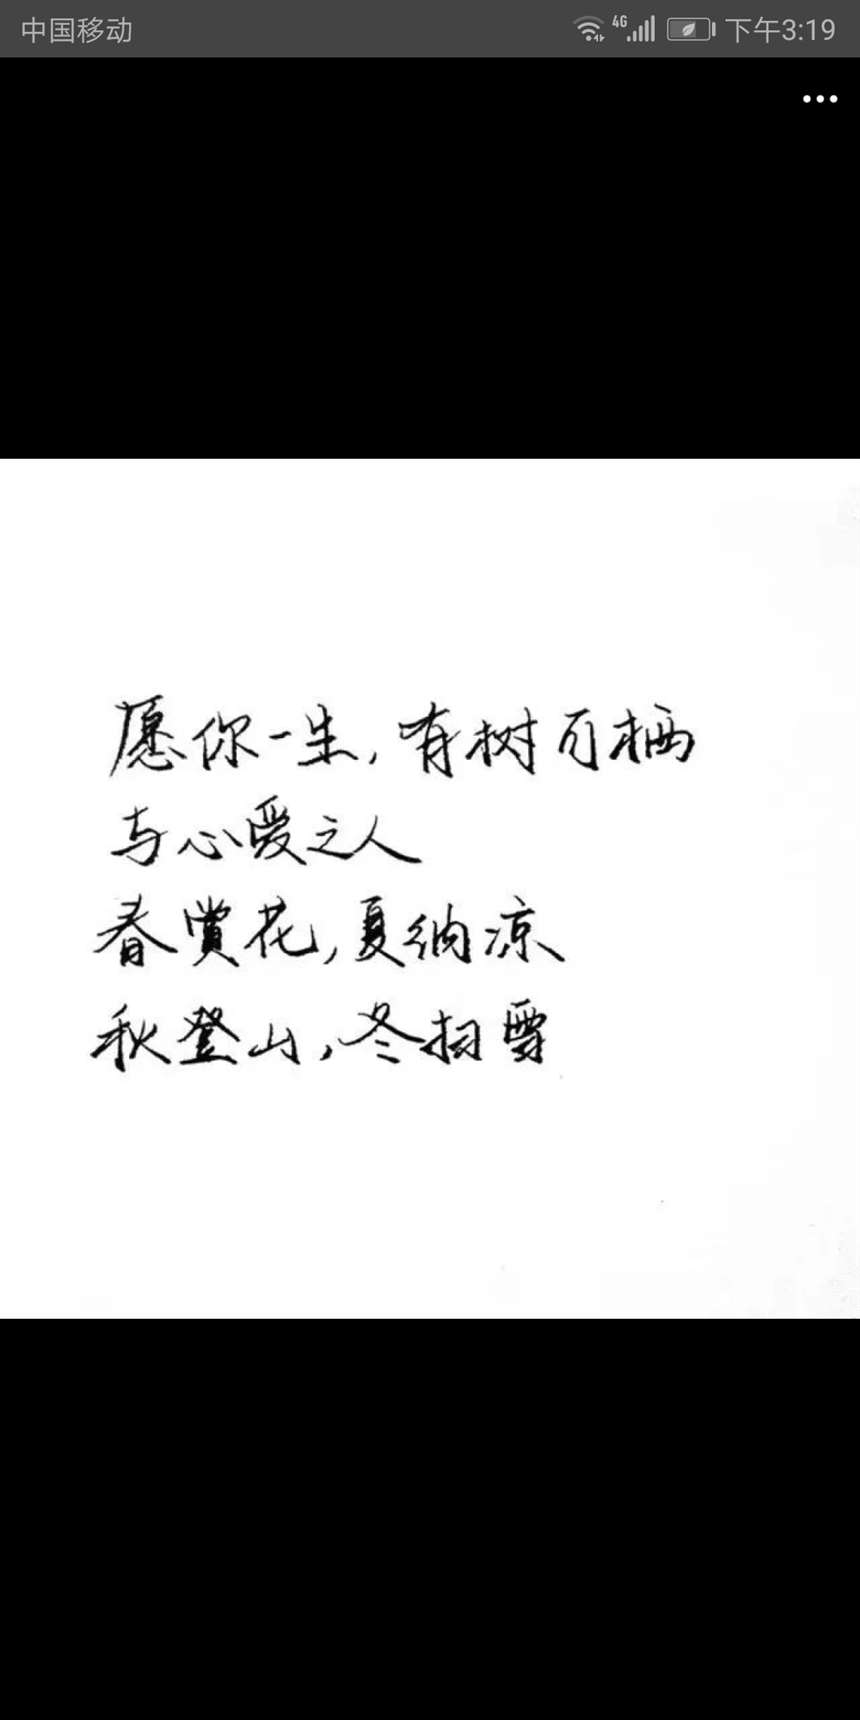 中国移动 4G 下午3:19
愿你一生,有树可栖
与心爱之人
春赏花,夏纳凉
秋登山,冬扫雪